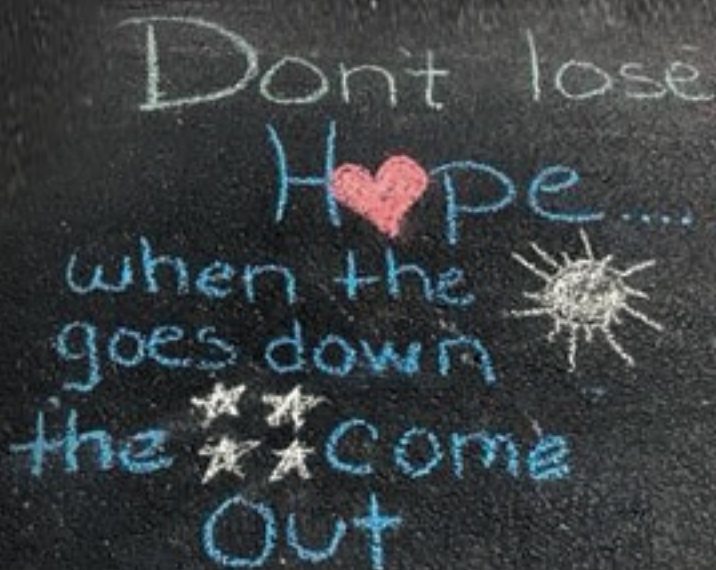 Don't lose
H❤pe....
when the ☀
goes down
the ⭐⭐⭐⭐ come
Out